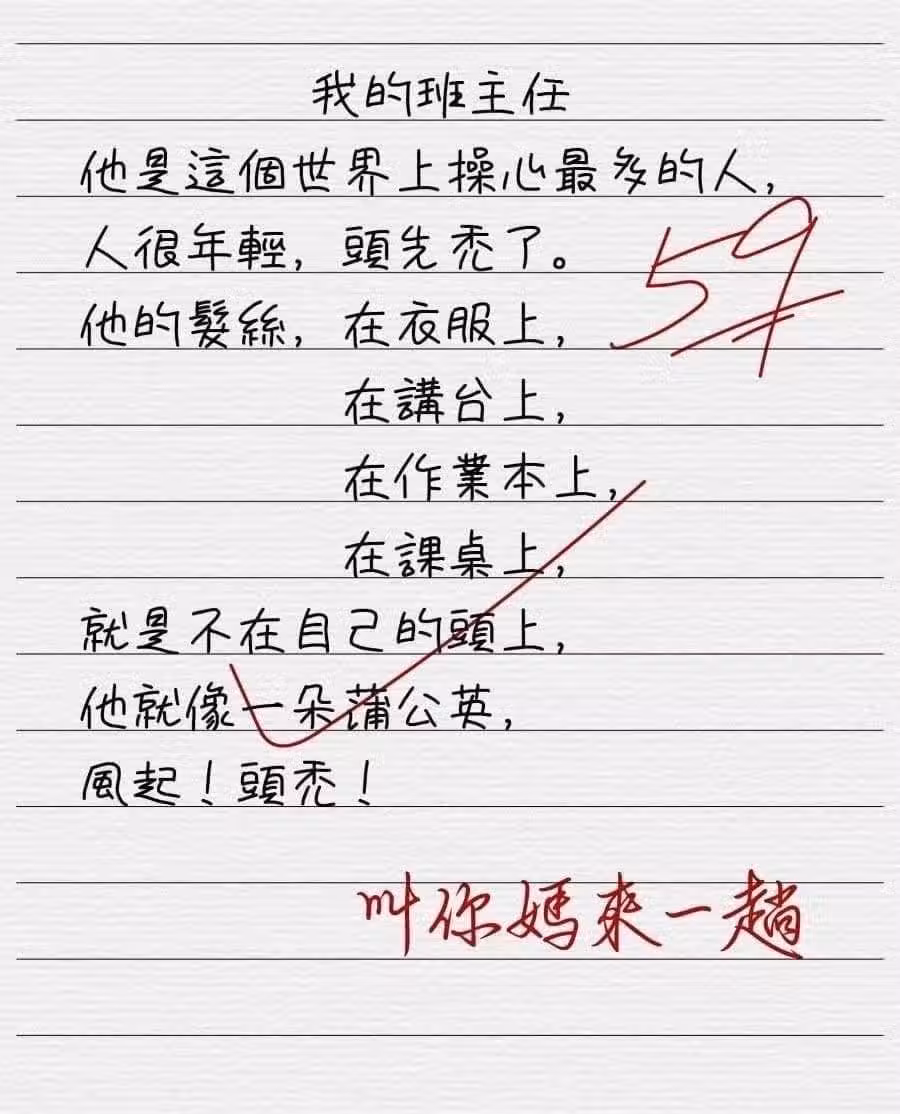 我的班主任
他是這個世界上操心最多的人,
人很年輕, 頭先禿了。
59
他的髮絲, 在衣服上,
在講台上,
在作業本上,
在課桌上,
就是不在自己的頭上,
他就像一朵蒲公英,
風起！頭禿！
叫你媽來一趟